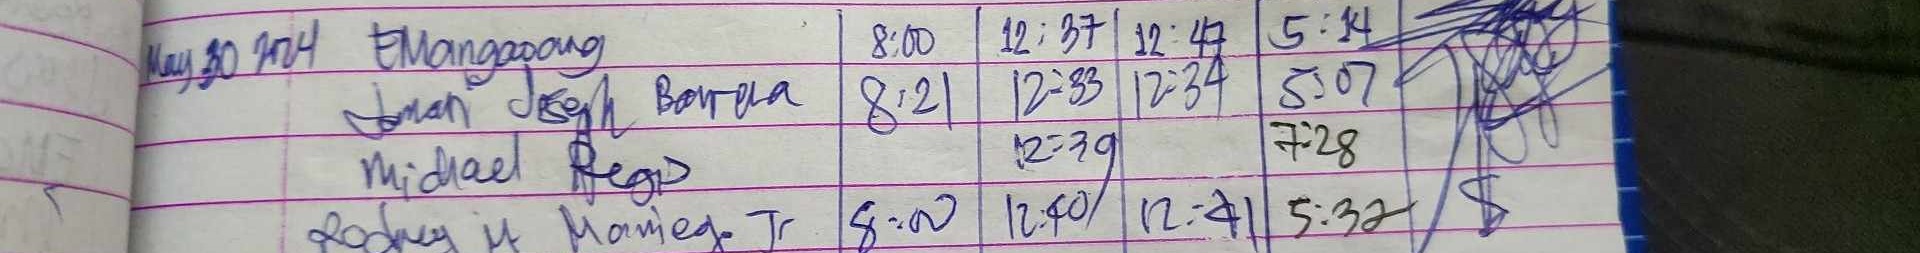 May 30 2024 EMangaoang 8:00 12:37 12:47 5:14
Joseph Barrera 8:21 12:33 12:34 5:07
Michael Regio 12:39 7:28
Rodney M Jr 8:00 12:40 12:41 5:32